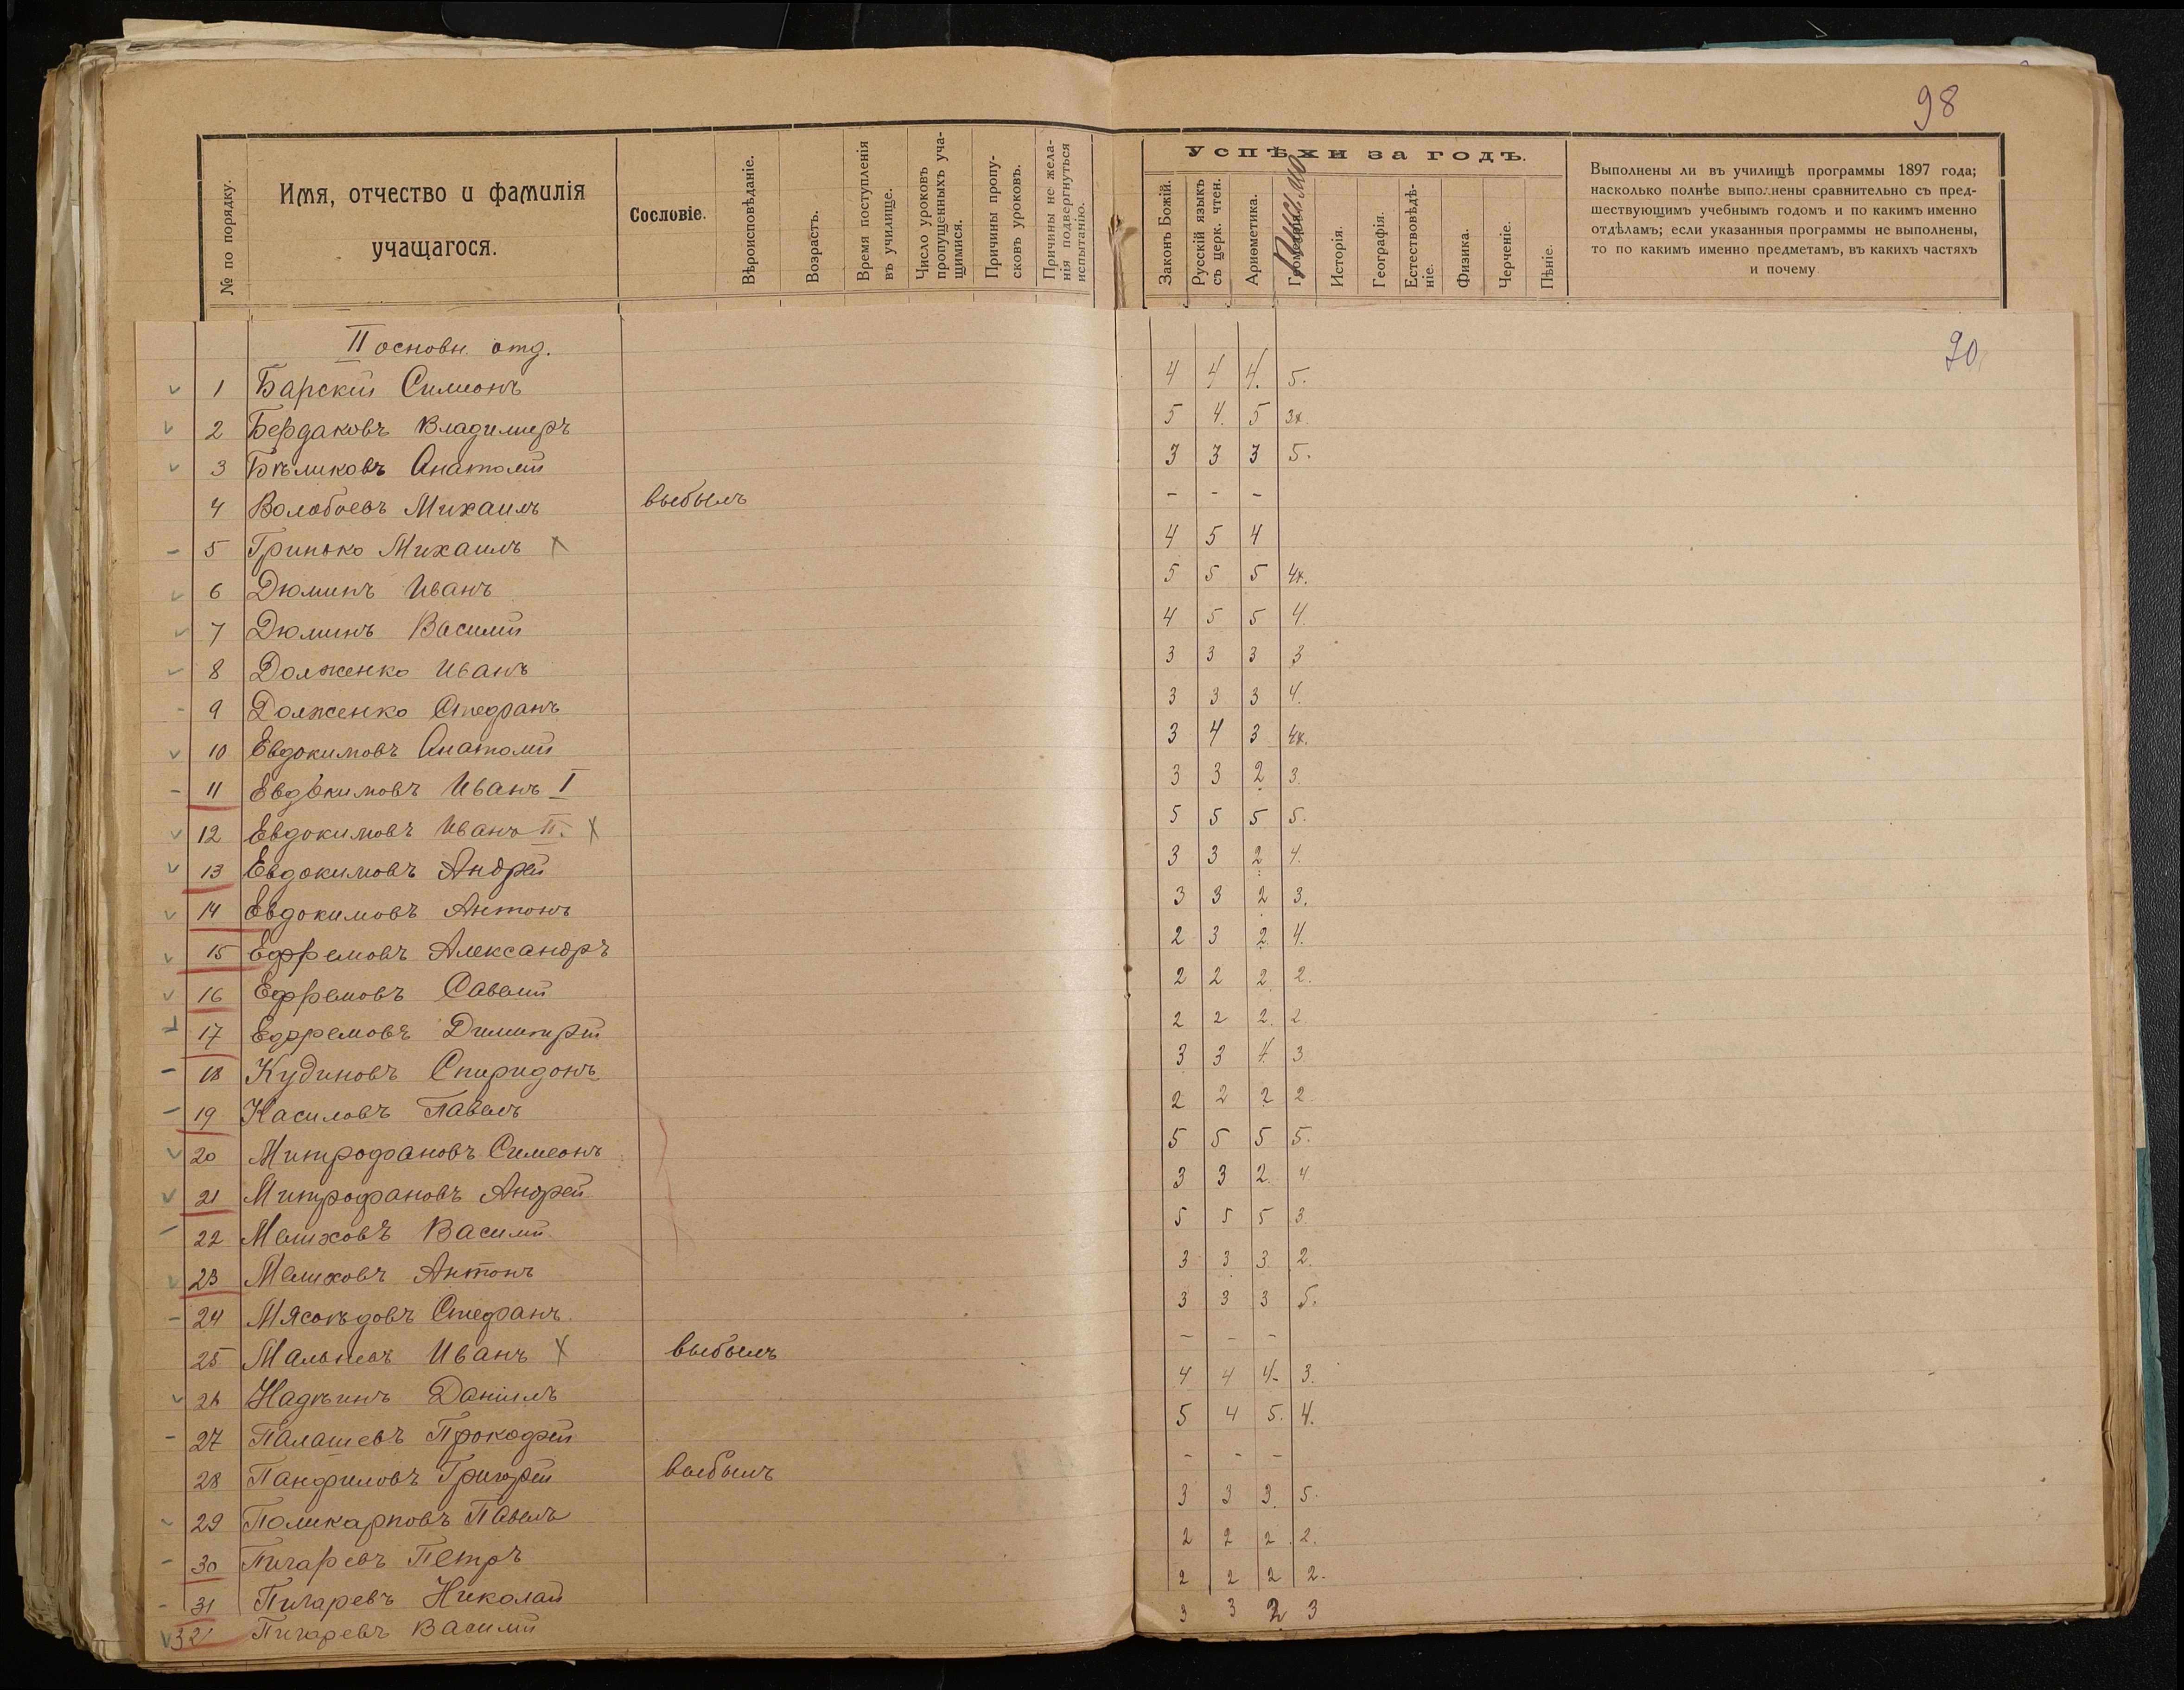 98
№ по порядку.
Имя, отчество и фамилія учащагося.
Сословіе.
Вѣроисповѣданіе.
Возрастъ.
Время поступленія въ училище.
Число уроковъ пропущенныхъ учащимися.
Причины пропусковъ уроковъ.
Причины не желанія подвергнуться испытанію.
Успѣхи за годъ.
Законъ Божій.
Русскій языкъ съ церк. чтен.
Ариѳметика.
Письмо
Исторія.
Географія.
Естествовѣдѣніе.
Физика.
Черченіе.
Пѣніе.
Выполнены ли въ училищѣ программы 1897 года;
насколько полнѣе выполнены сравнительно съ пред-
шествующимъ учебнымъ годомъ и по какимъ именно
отдѣламъ; если указанныя программы не выполнены,
то по какимъ именно предметамъ, въ какихъ частяхъ
и почему
II основн. отд.
90
1 Барскій Симионъ 4 4 4. 5.
2 Бердаковъ Владимиръ 5 4. 5 3х.
3 Бѣликовъ Анатолій 3 3 3 5.
4 Волобоевъ Михаилъ выбылъ - - -
5 Гринько Михаилъ х 4 5 4
6 Дюминъ Иванъ 5 5 5 4х.
7 Дюминъ Василій 4 5 5 4.
8 Долженко Иванъ 3 3 3 3
9 Долженко Стефанъ 3 3 3 4.
10 Евдокимовъ Анатолій 3 4 3 4х.
11 Евдокимовъ Иванъ I 3 3 2 3.
12 Евдокимовъ Иванъ II. х 5 5 5 5.
13 Евдокимовъ Андрей 3 3 2 4.
14 Евдокимовъ Антонъ 3 3 2 3.
15 Ефремовъ Александръ 2 3 2 4.
16 Ефремовъ Савелій 2 2 2 2.
17 Ефремовъ Димитрій 2 2 2. 2
18 Кудиновъ Спиридонъ 3 3 4 3
19 Касиловъ Павелъ 2 2 2 2.
20 Митрофановъ Симеонъ 5 5 5 5.
21 Митрофановъ Андрей 3 3 2. 4
22 Мелиховъ Василій 5 5 5 3
23 Мелиховъ Антонъ 3 3 3 2.
24 Мясоѣдовъ Стефанъ. 3 3 3 5.
25 Иванъ х выбылъ - - -
26 Надѣинъ Даніилъ 4 4 4. 3.
27 Палашевъ Прокофій 5 4 5. 4.
28 Панфиловъ Григорій выбылъ - - -
29 Поликарповъ Павелъ 3 3 3. 5.
30 Пигаревъ Петръ 2 2 2 2.
31 Пигаревъ Николай 2 2 2 2.
32 Пигаревъ Василій 3 3 2 3